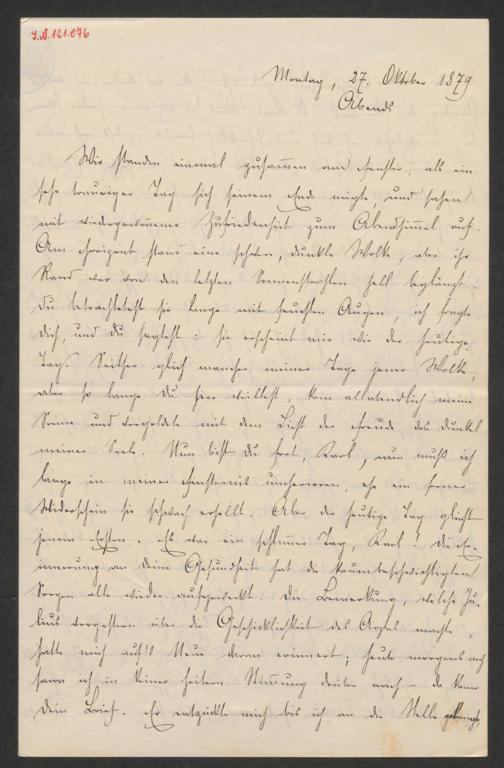 I.N. 121.076
Montag, 27. Oktober 1879
Abends
Wir standen einmal zusam̅en am Fenster, als ein
sehr trauriger Tag sich seinem Ende neigte, und sahen
mit wiedergewon̅ener Zufriedenheit zum Abendhim̅el auf.
Am Horizont stand eine schwere, dunkle Wolke, aber ihr
Rand war von den letzten Sonnenstrahlen hell beglänzt.
Du betrachtetest sie lange mit feuchten Augen, ich fragte
dich, und du sagtest: sie erscheint mir wie der heutige
Tag. Seither glich mancher meiner Tage jener Wolke,
aber so lange Du hier weiltest, kam allabendlich meine
Sonne und vergoldete mit dem Licht der Freude das Dunkel
meiner Seele. Nun bist du fort, Karl, nun muß ich
lange in meiner Finsternis umherirren, ehe ein ferner
Widerschein sie schwach erhellt. Aber der heutige Tag glich
jenem Ersten. Es war ein schlim̅er Tag, Karl! Die Er-
innerung an deine Gesundheit hat die kaum beschwichtigten
Sorgen alle wieder aufgeweckt. Die Bemerkung, welche Ju-
lius vorgestern über die Geschicklichkeit des Arztes machte,
hatte mich auf's Neue daran erinnert; heute morgens noch
sann ich in keiner heitern Stim̅ung darüber nach - da kam
Dein Brief. Er entzückte mich bis ich an die Stelle gelangte,